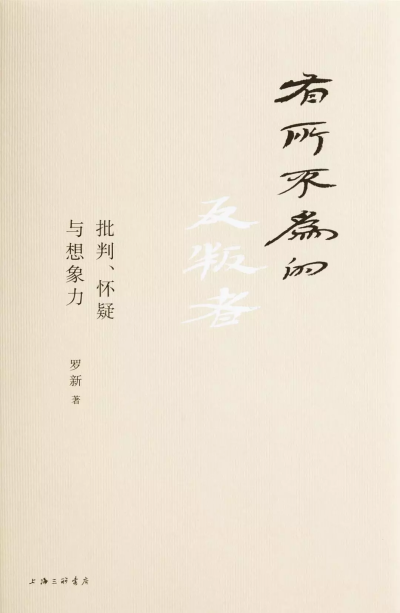 有所不為的
反叛者
批判、怀疑
与想象力
罗新 著
上海三联书店